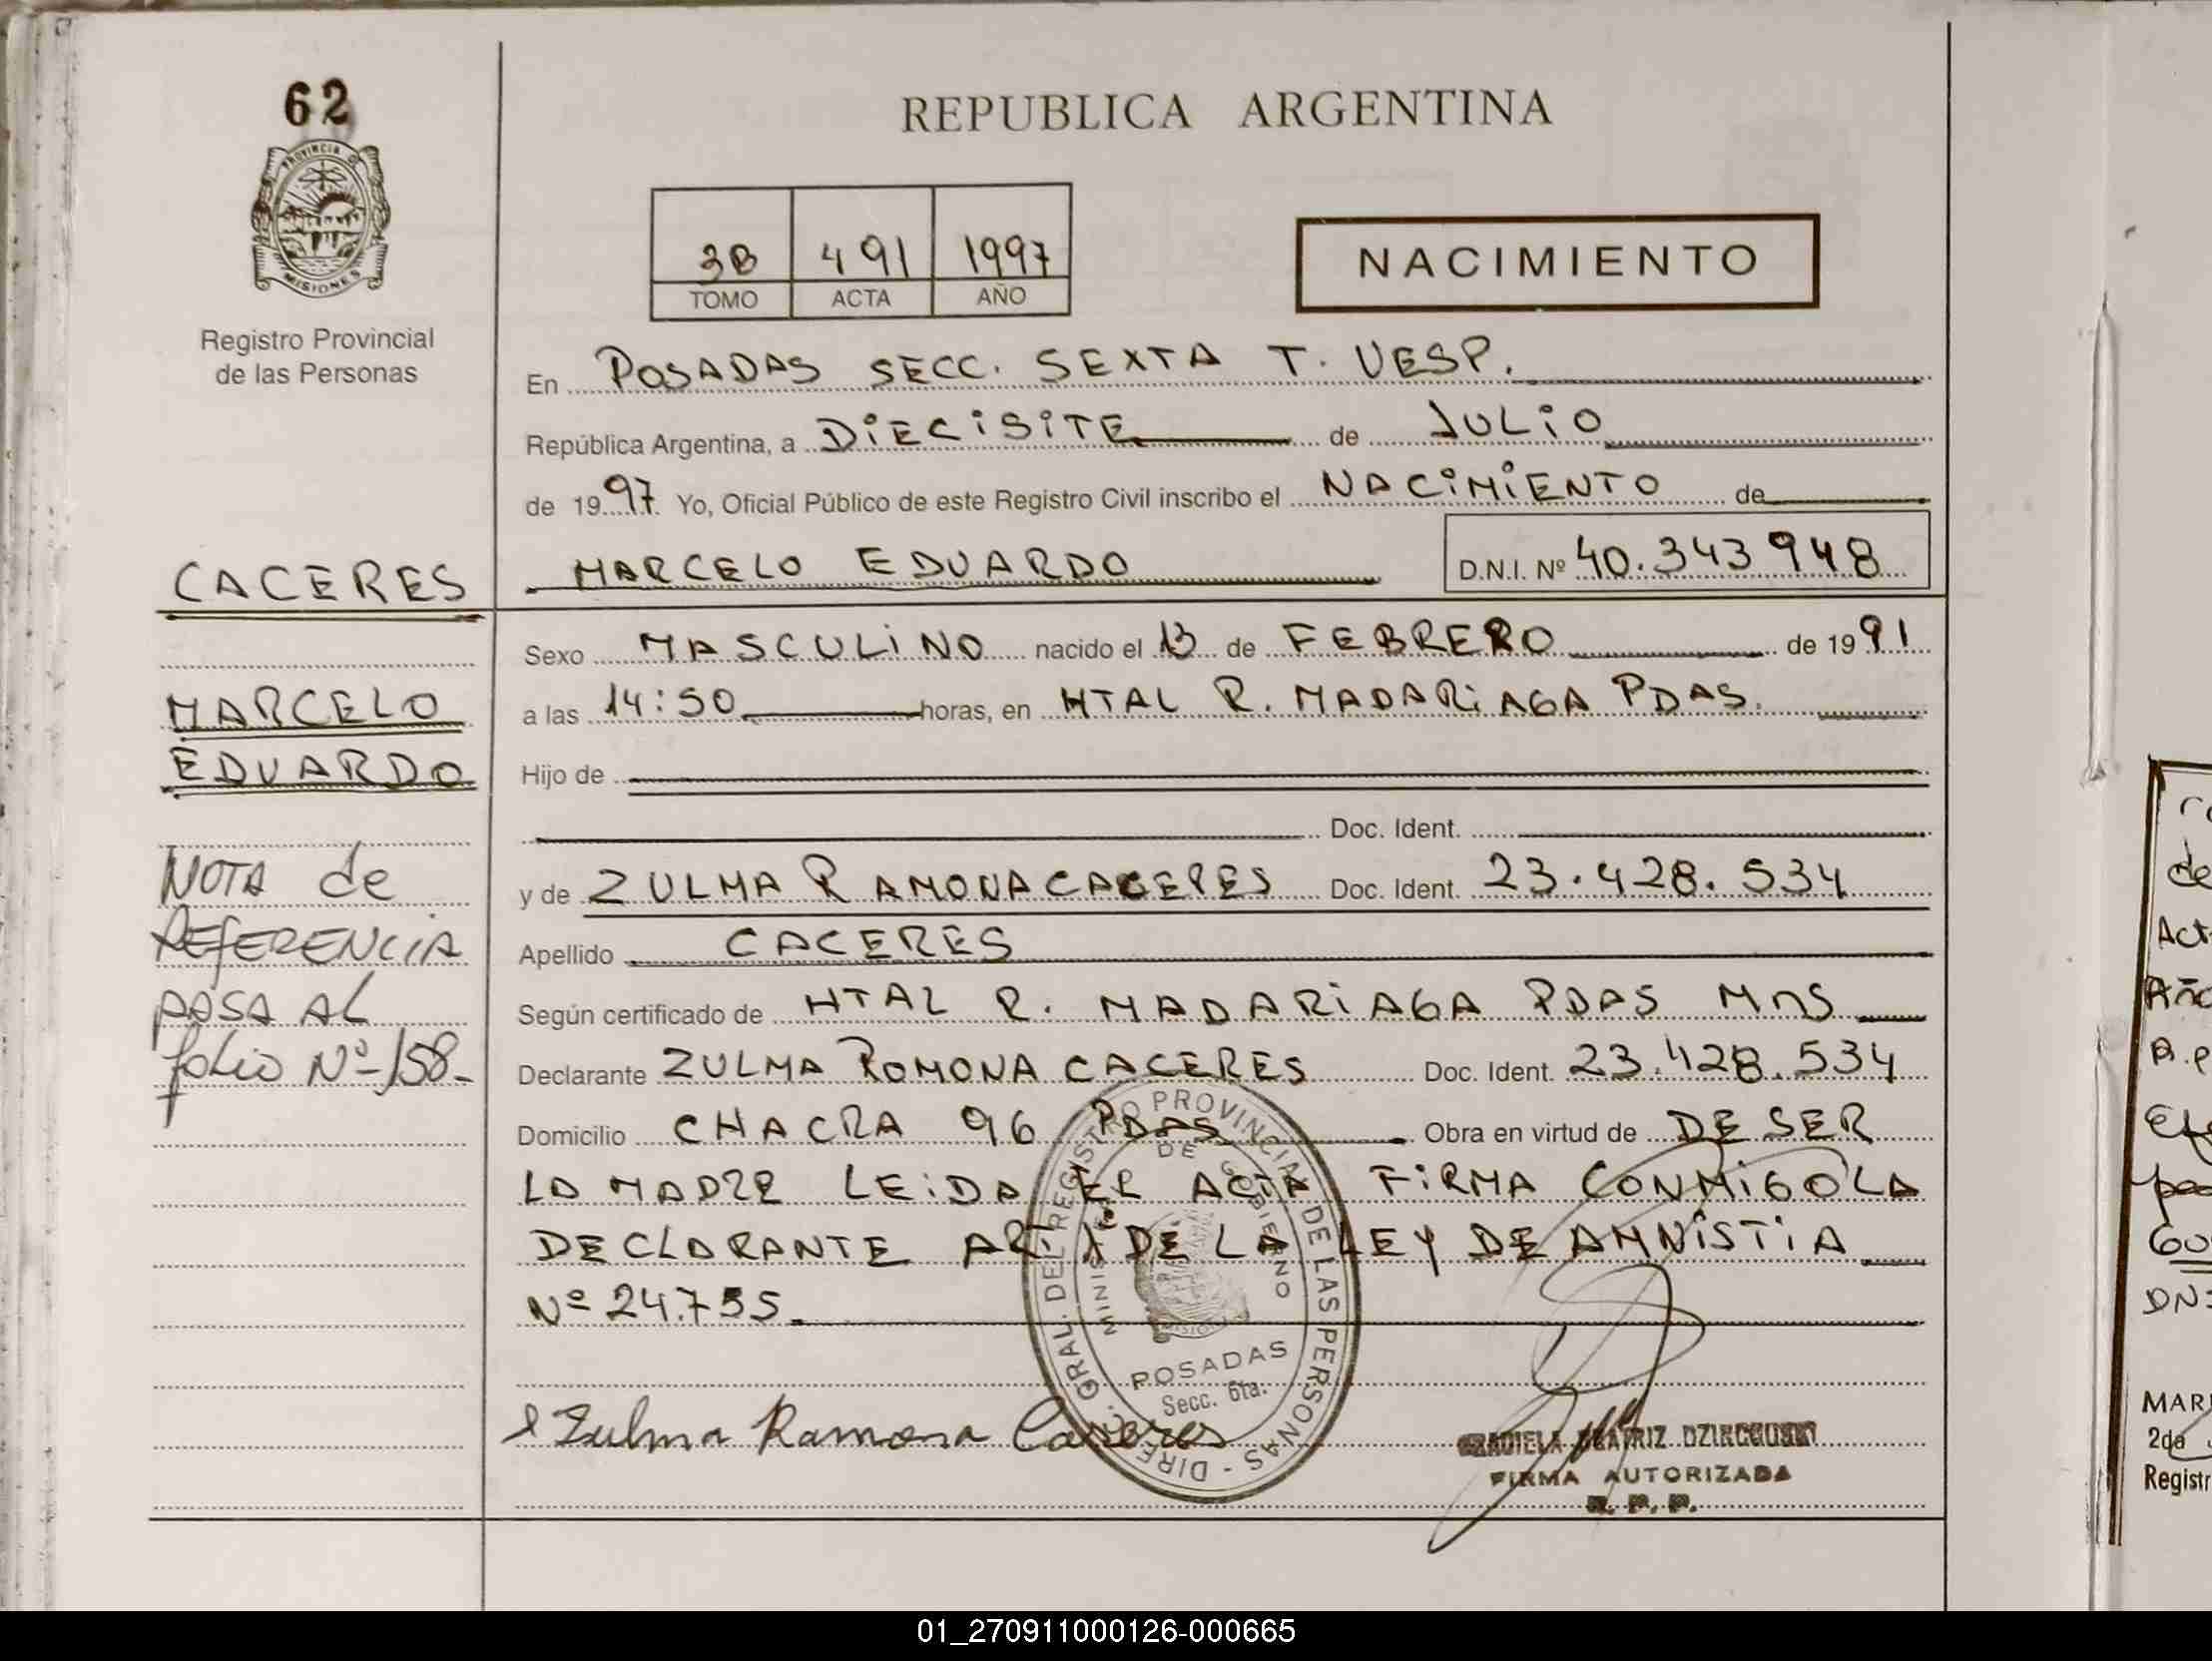 62
PROVINCIA DE
MISIONES
Registro Provincial
de las Personas
CACERES
MARCELO
EDUARDO
NOTA de
REFERENCIA
PASA AL
folio Nº 158-
REPUBLICA ARGENTINA
3B 491 1997
TOMO ACTA AÑO
NACIMIENTO
En POSADAS SECC. SEXTA T. VESP.
República Argentina, a DIECISITE de JULIO
de 1997 Yo, Oficial Público de este Registro Civil inscribo el NACIMIENTO de
MARCELO EDUARDO D.N.I. Nº 40.343948
Sexo MASCULINO nacido el 13 de FEBRERO de 1991
a las 14:50 horas, en HTAL R. MADARIAGA PDAS.
Hijo de
Doc. Ident.
y de ZULMA RAMONA CACERES Doc. Ident. 23.428.534
Apellido CACERES
Según certificado de HTAL R. MADARIAGA PDAS MNS
Declarante ZULMA ROMONA CACERES Doc. Ident. 23.428.534
Domicilio CHACRA 96 PDAS Obra en virtud de DE SER
LA MADRE LEIDA EL ACTA FIRMA CONMIGO LA
DECLARANTE ART DE LA LEY DE AMNISTIA
Nº 24.755
DIREC. GRAL. DEL REGISTRO PROVINCIAL DE LAS PERSONAS -
MINIST. DE GOBIERNO
MISIONES
POSADAS
Secc. 6ta.
Zulma Ramona Caseres
GRACIELA BEATRIZ
FIRMA AUTORIZADA
R. P. P.
de
Act
Año
A.P
DN
MAR
2da
Registr
01_270911000126-000665